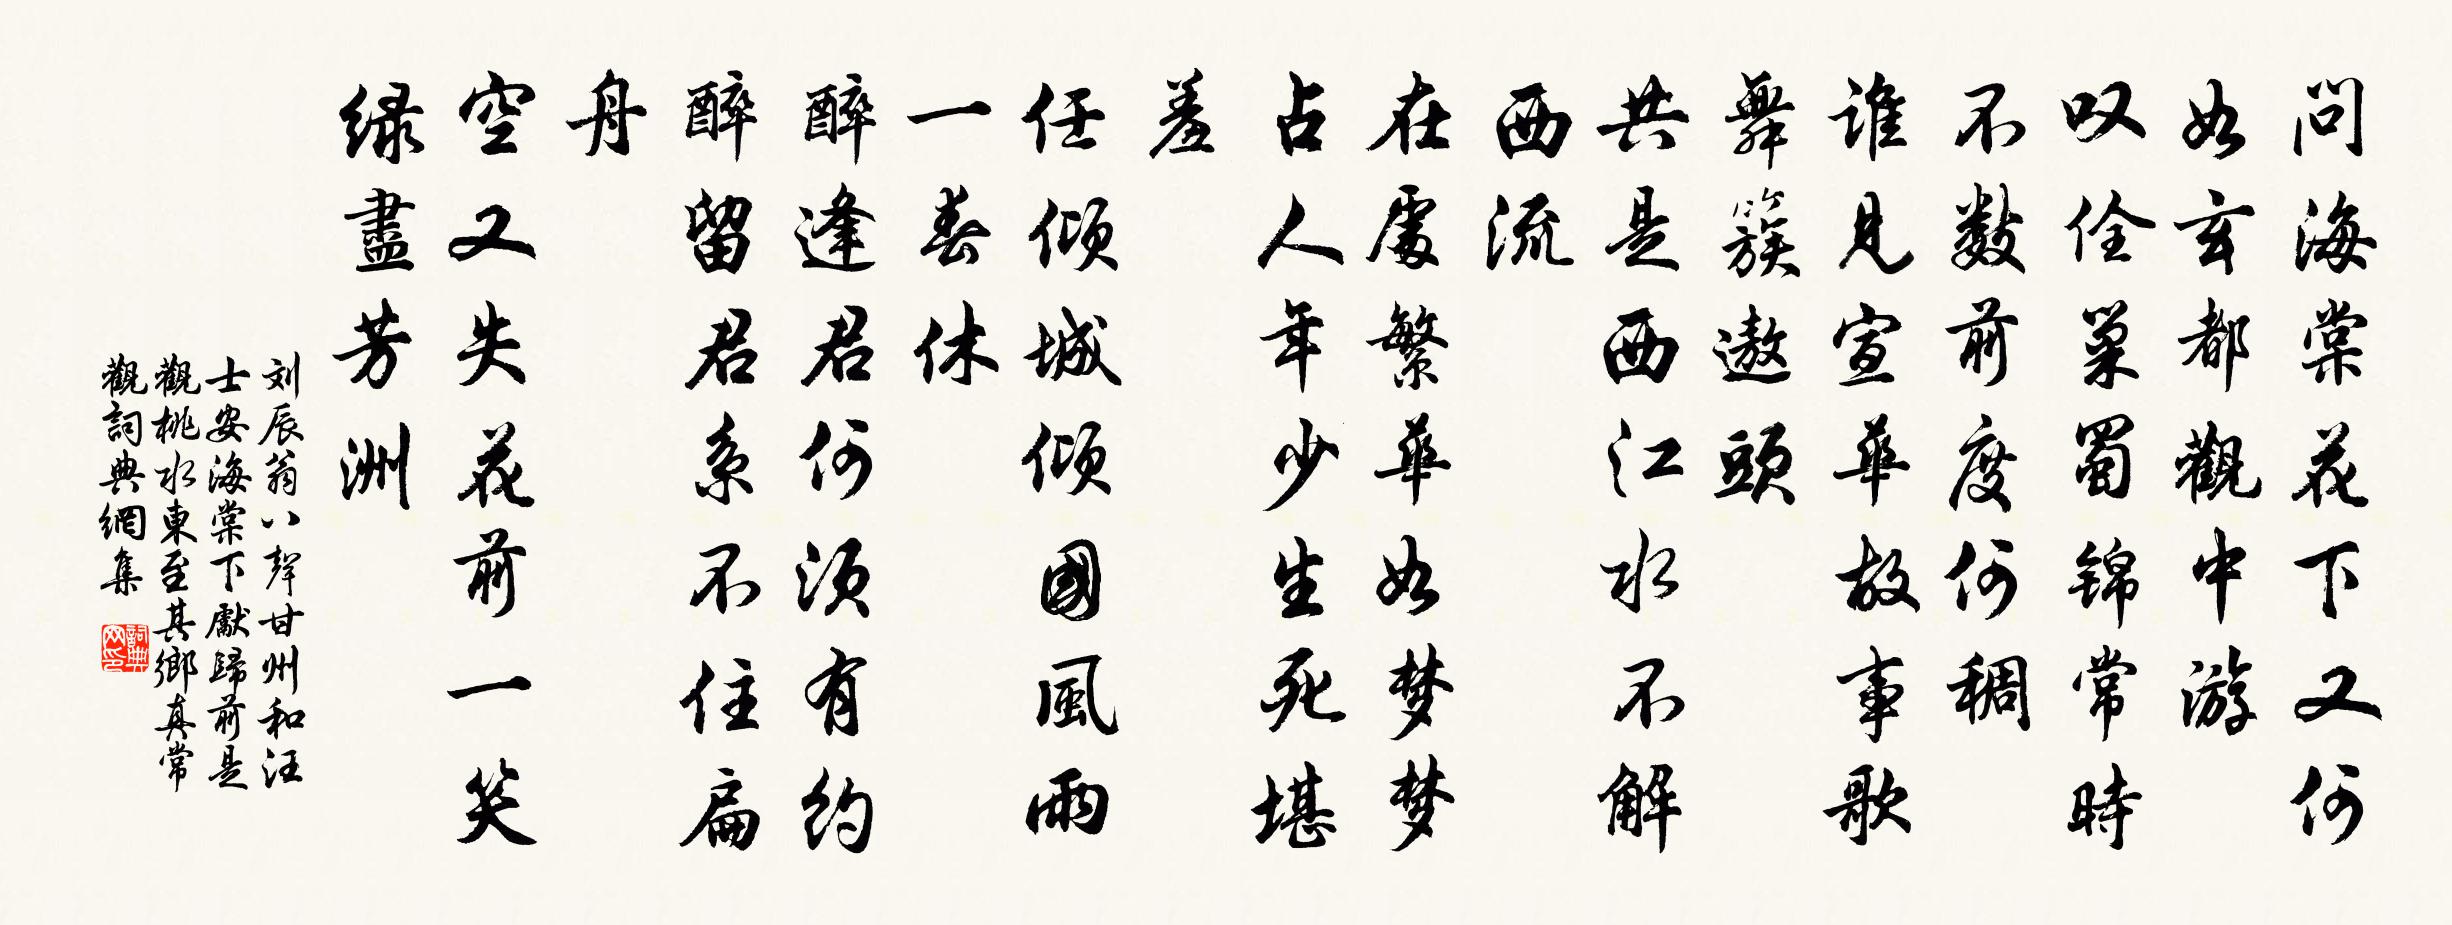 問海棠花下又何
如玄都觀中游
叹佺巢蜀锦常時
不数前度何稠
谁見宣華故事歌
舞簇遨頭
共是西江水不解
西流
在處繁華如梦梦
占人年少生死堪
羞
任倾城倾國風雨
一春休
醉逢君何须有约
醉留君系不住扁
舟
空又失花前一笑
绿盡芳洲
刘辰翁八聲甘州和汪
士安海棠下獻歸前是
觀桃水東至其鄉真常
觀詞典網集
詞典
网印